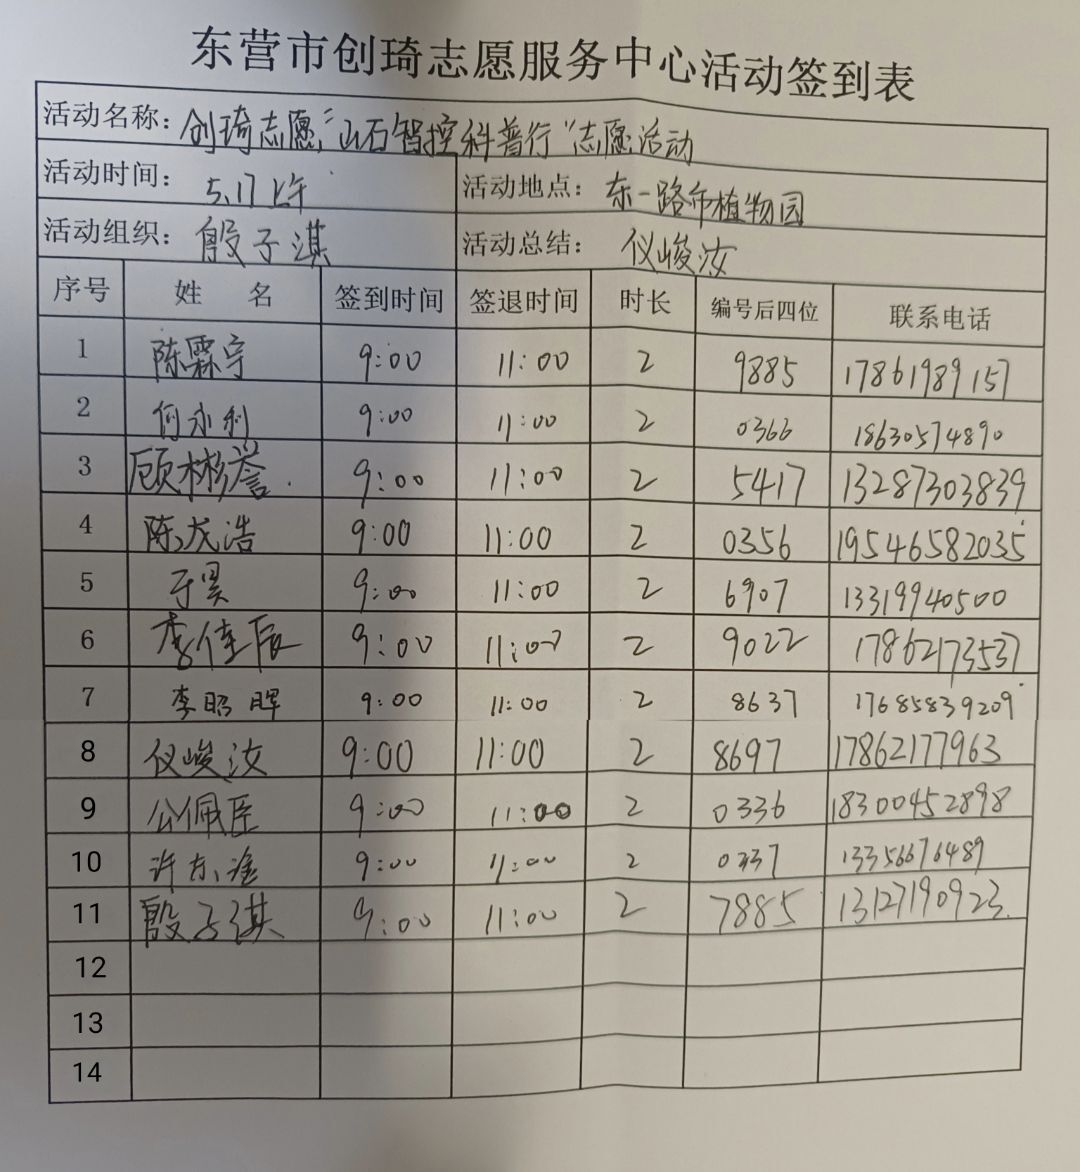 东营市创琦志愿服务中心活动签到表
活动名称：创琦志愿“山石智控科普行”志愿活动
活动时间：5.17上午 活动地点：东一路市植物园
活动组织：殷子淇 活动总结：仪峻汝
序号 姓 名 签到时间 签退时间 时长 编号后四位 联系电话
1 陈霖宇 9:00 11:00 2 9885 17861989157
2 何永利 9:00 11:00 2 0366 18630574890
3 顾彬誉 9:00 11:00 2 5417 13287303839
4 陈龙浩 9:00 11:00 2 0356 19546582035
5 于昊 9:00 11:00 2 6907 13319940500
6 李佳辰 9:00 11:00 2 9022 17862173537
7 李昭晖 9:00 11:00 2 8637 17685839209
8 仪峻汝 9:00 11:00 2 8697 17862177963
9 公佩臣 9:00 11:00 2 0336 18300452898
10 许东 9:00 11:00 2 0337 13356676489
11 殷子淇 9:00 11:00 2 7885 13127190923
12
13
14